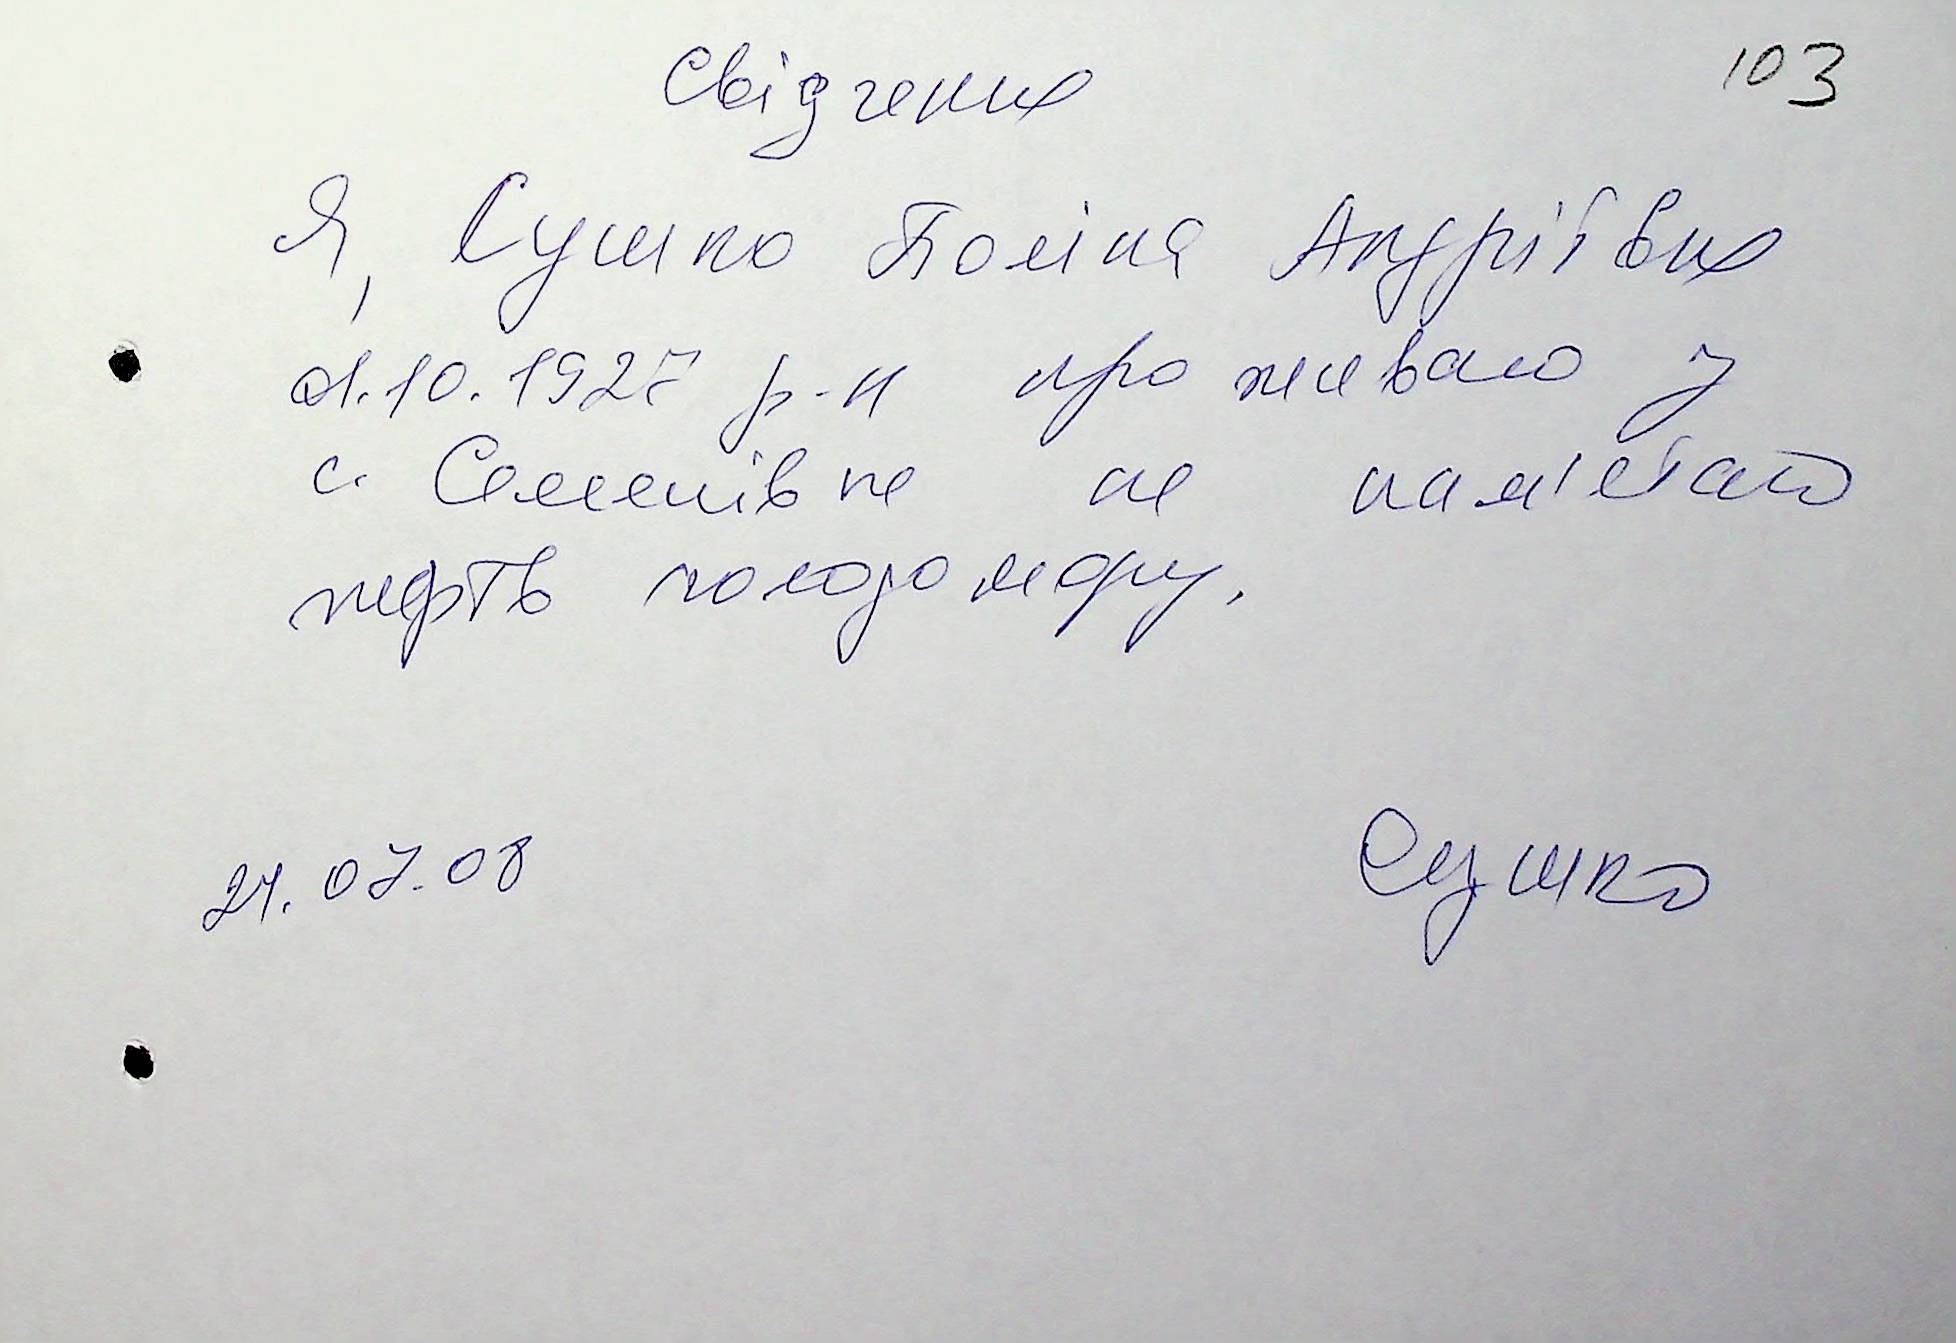 103
Свідчення
Я, Сушко Поліна Андріївна
01.10.1927 р-н проживаю у
с. Семенівке не пам'етаю
жертв голодомору.
21.07.08 Сушко